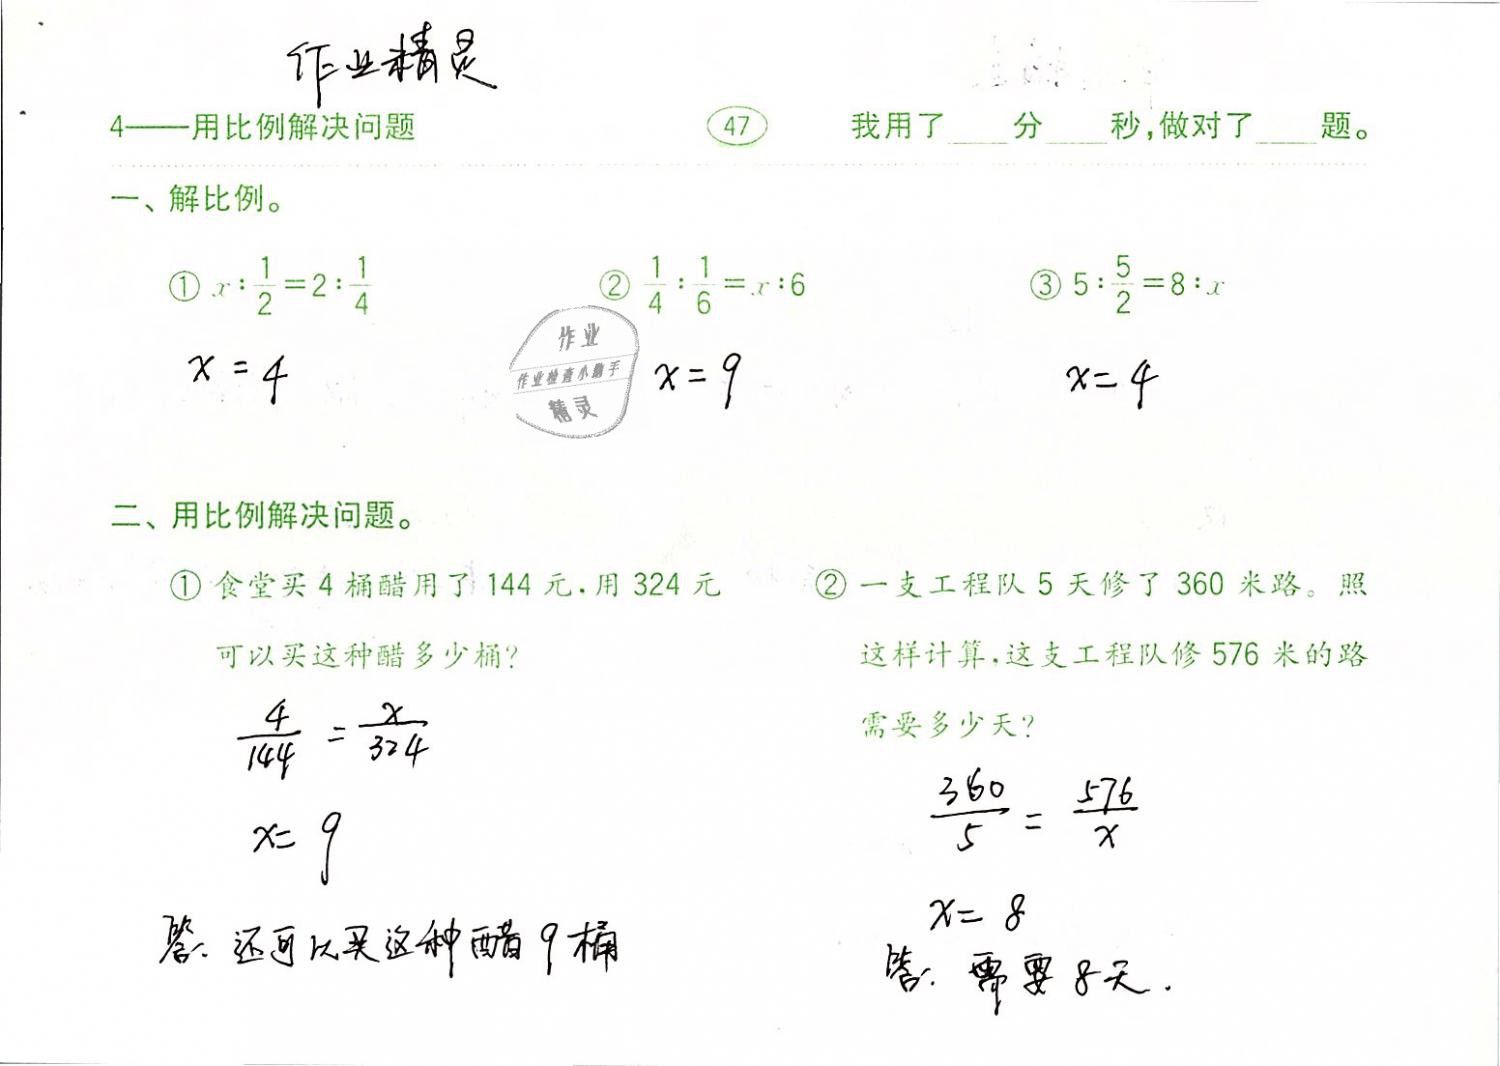 作业精灵
4——用比例解决问题 47 我用了____分____秒,做对了____题。
一、解比例。
① x:1/2=2:1/4 ② 1/4:1/6=x:6 ③ 5:5/2=8:x
x=4 x=9 x=4
作业
作业检查小助手
精灵
二、用比例解决问题。
① 食堂买4桶醋用了144元,用324元
可以买这种醋多少桶?
4/144=x/324
x=9
答:还可以买这种醋9桶
② 一支工程队5天修了360米路。照
这样计算,这支工程队修576米的路
需要多少天?
360/5=576/x
x=8
答:需要8天.